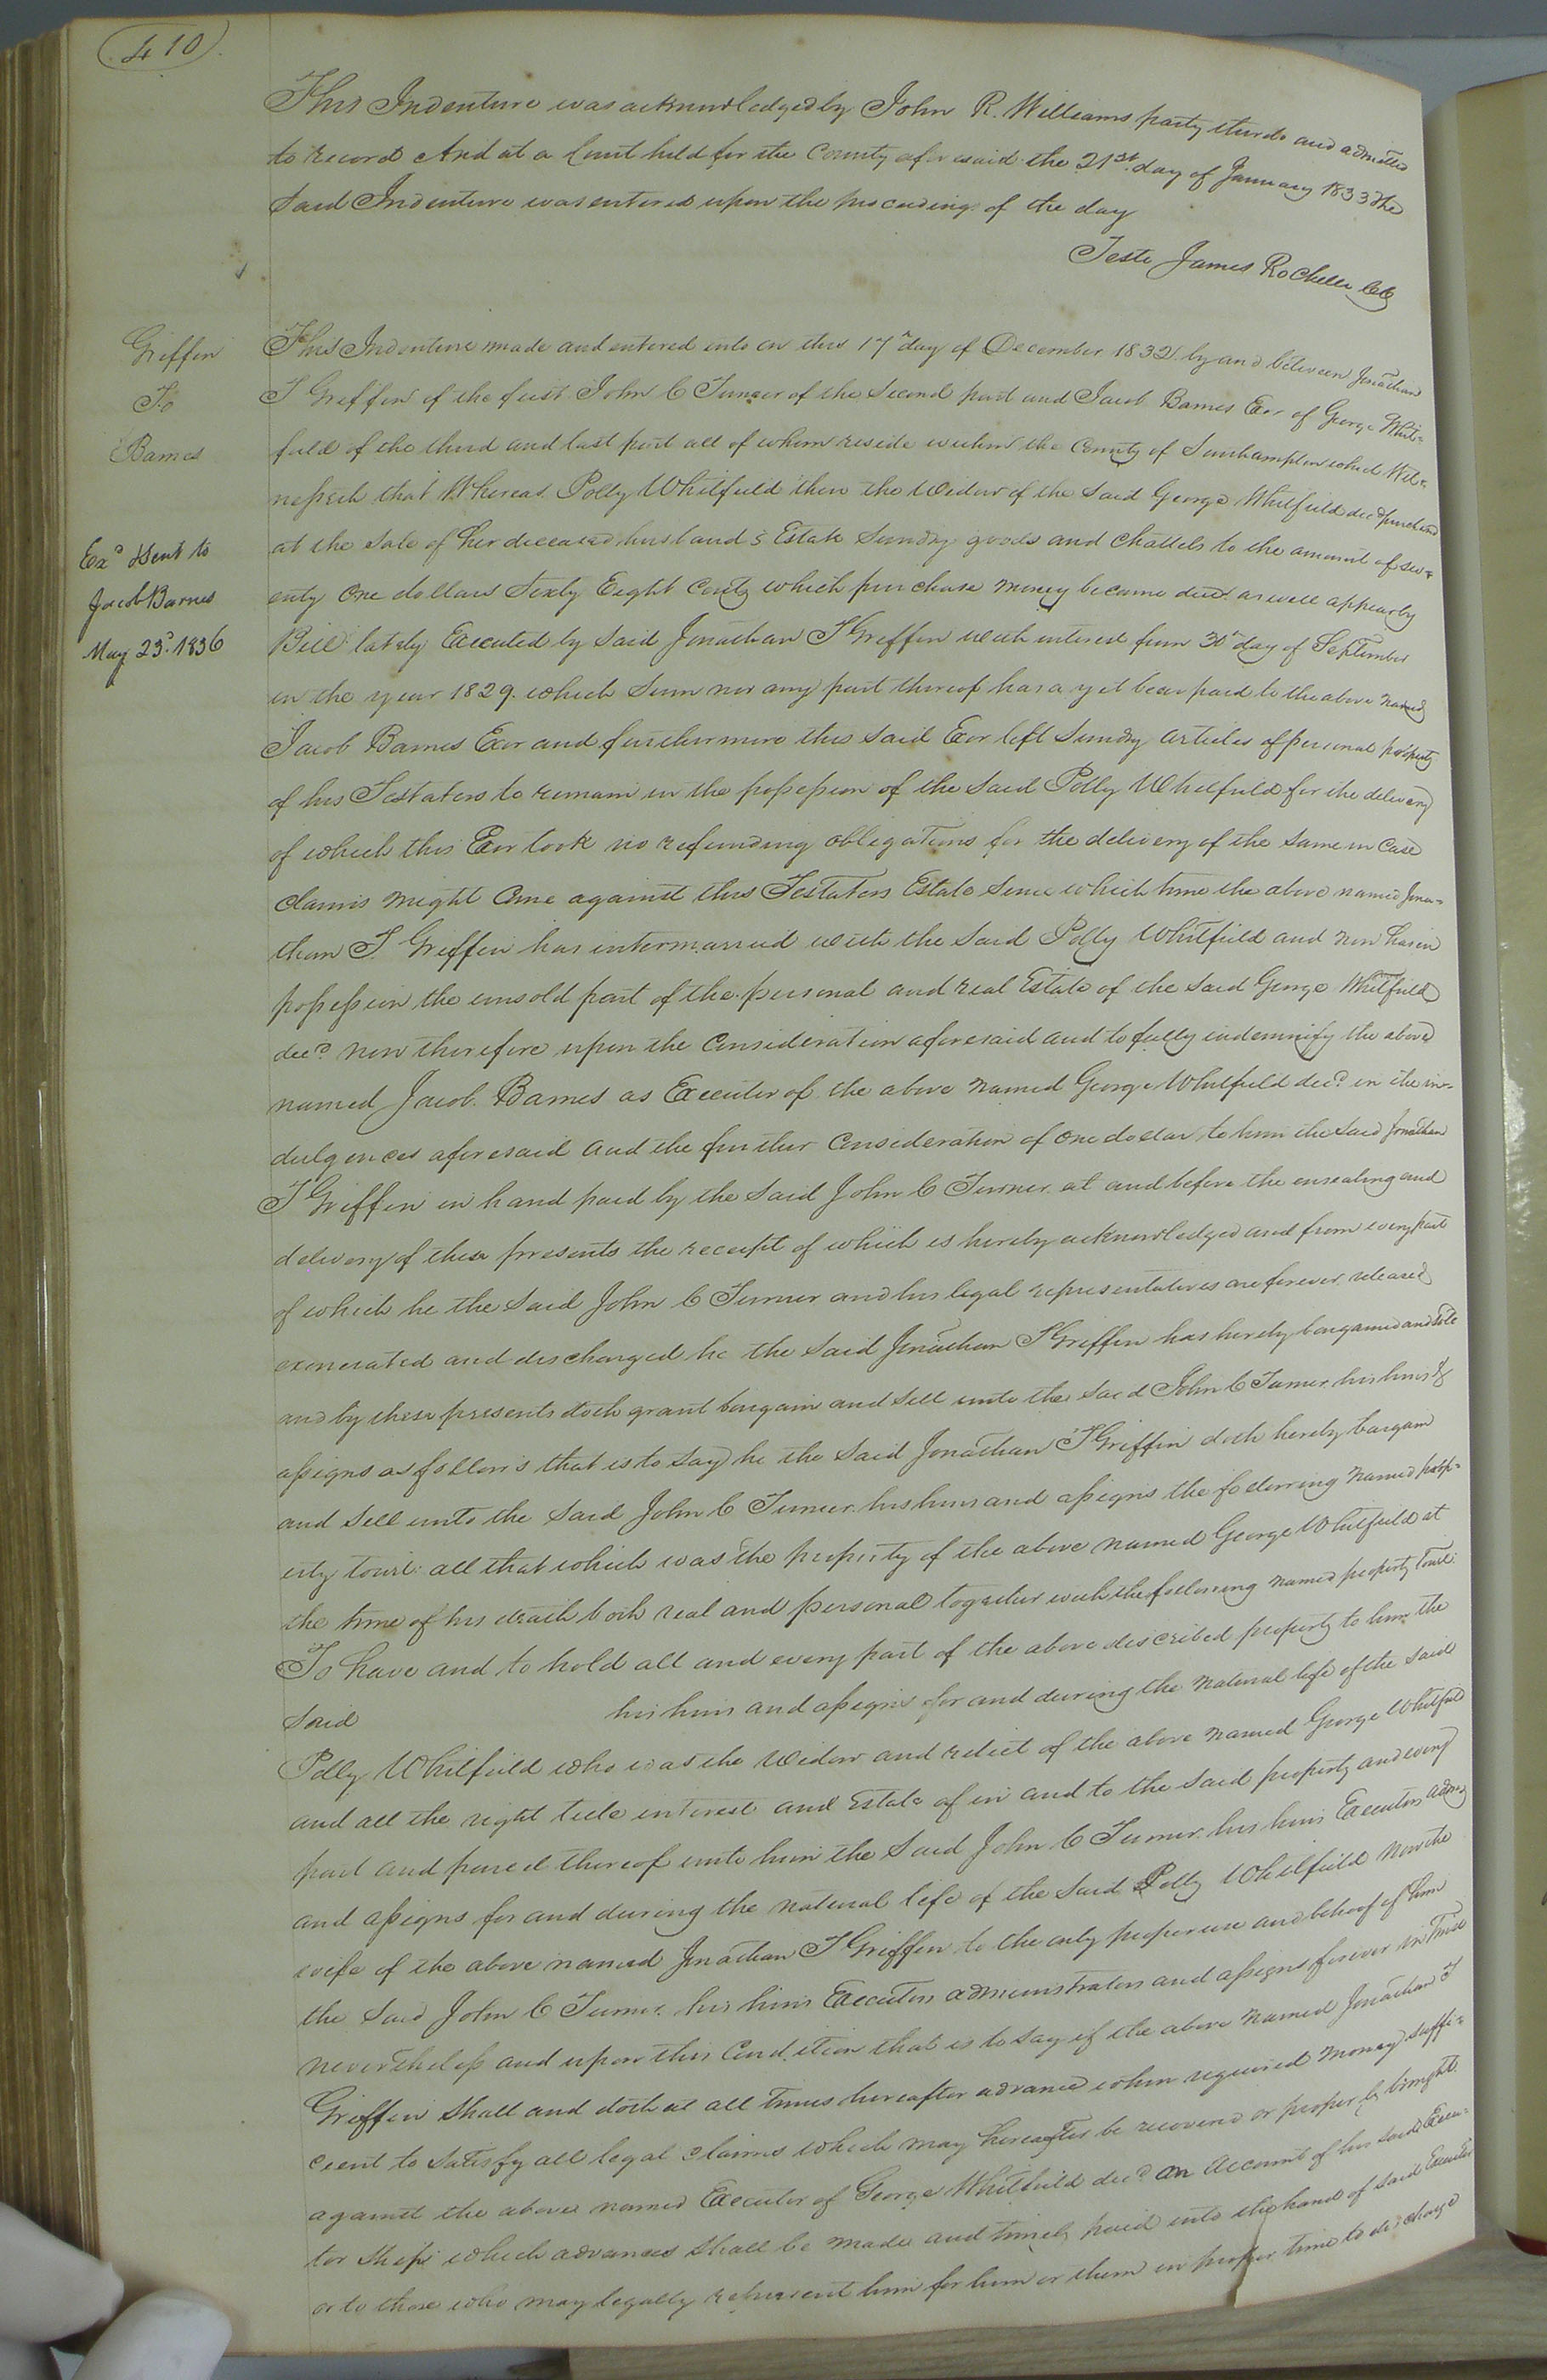 410
This Indenture was acknowledged by John R. Williams party thereto and admitted
to record And at a Court held for the County aforesaid the 21st day of January 1833 the
said Indenture was entered upon the proceedings of the day
Teste James Rochelle CC
Griffin
To
Barnes
Exd & Sent to
Jacob Barnes
May 23d. 1836
This Indenture made and entered into on this 17th day of December 1832 by and between Jonathan
T Griffin of the first John C Turner of the Second part and Jacob Barnes Exor of George Whit=
field of the third and last part all of whom reside within the County of Southampton which Wit=
nesseth that Whereas Polly Whitfield then the Widow of the Said George Whitfield decd purchased
at the Sale of her deceased husband's Estate Sundry goods and Chattels to the amount of sev=
enty One dollars Sixty Eight Cents which purchase money became due as will appear by
Bill lately Executed by Said Jonathan T Griffin with interest from 30th day of September
in the year 1829. which Sum nor any part thereof has as yet been paid to the above named
Jacob Barnes Exor and furthermore this Said Exor left Sundry articles of personal property
of his Testators to remain in the possession of the Said Polly Whitfield for the delivery
of which this Exor took no refunding obligations for the delivery of the Same in Case
claims might Come against this Testators Estate Since which time the above named Jona=
than T Griffin has intermarried with the Said Polly Whitfield and now has in
possession the unsold part of the personal and real Estate of the Said George Whitfield
decd. now therefore upon the Consideration aforesaid and to fully indemnify the above
named Jacob Barnes as Executor of the above named George Whitfield decd. in the in=
dulgences aforesaid and the further Consideration of one dollar to him the Said Jonathan
T Griffin in hand paid by the Said John C Turner at and before the ensealing and
delivery of these presents the receipt of which is hereby acknowledged and from every part
of which he the Said John C Turner and his legal representatives are forever released
exonerated and discharged he the Said Jonathan T Griffin has hereby bargained and sold
and by these presents doth grant bargain and Sell unto the Said John C Turner his heirs &
assigns as follows that is to say he the Said Jonathan T Griffin doth hereby bargain
and Sell unto the Said John C Turner his heirs and assigns the following named prop=
erty towit: all that which was the property of the above named George Whitfield at
the time of his death both real and personal together with the following named property towit:
To have and to hold all and every part of the above described property to him the
Said his heirs and assigns for and during the natural life of the Said
Polly Whitfield who was the Widow and relict of the above named George Whitfield
and all the right title interest and Estate of in and to the Said property and every
part and parcel thereof unto him the Said John C Turner his heirs Executors admrs
and assigns for and during the natural life of the Said Polly Whitfield Now the
wife of the above named Jonathan T Griffin to the only proper use and behoof of him
the Said John C Turner his heirs Executors administrators and assigns forever in Trust
nevertheless and upon this Condition that is to Say if the above named Jonathan T
Griffin Shall and doth at all times hereafter advance when required money suffi=
cient to Satisfy all legal Claims which may hereafter be recovered or properly brought
against the above named Executor of George Whitfield decd. on account of his said Execu=
tor Ship which advances Shall be made and timely paid into the hand of said Executor
or to those who may legally represent him for him or them in proper time to discharge